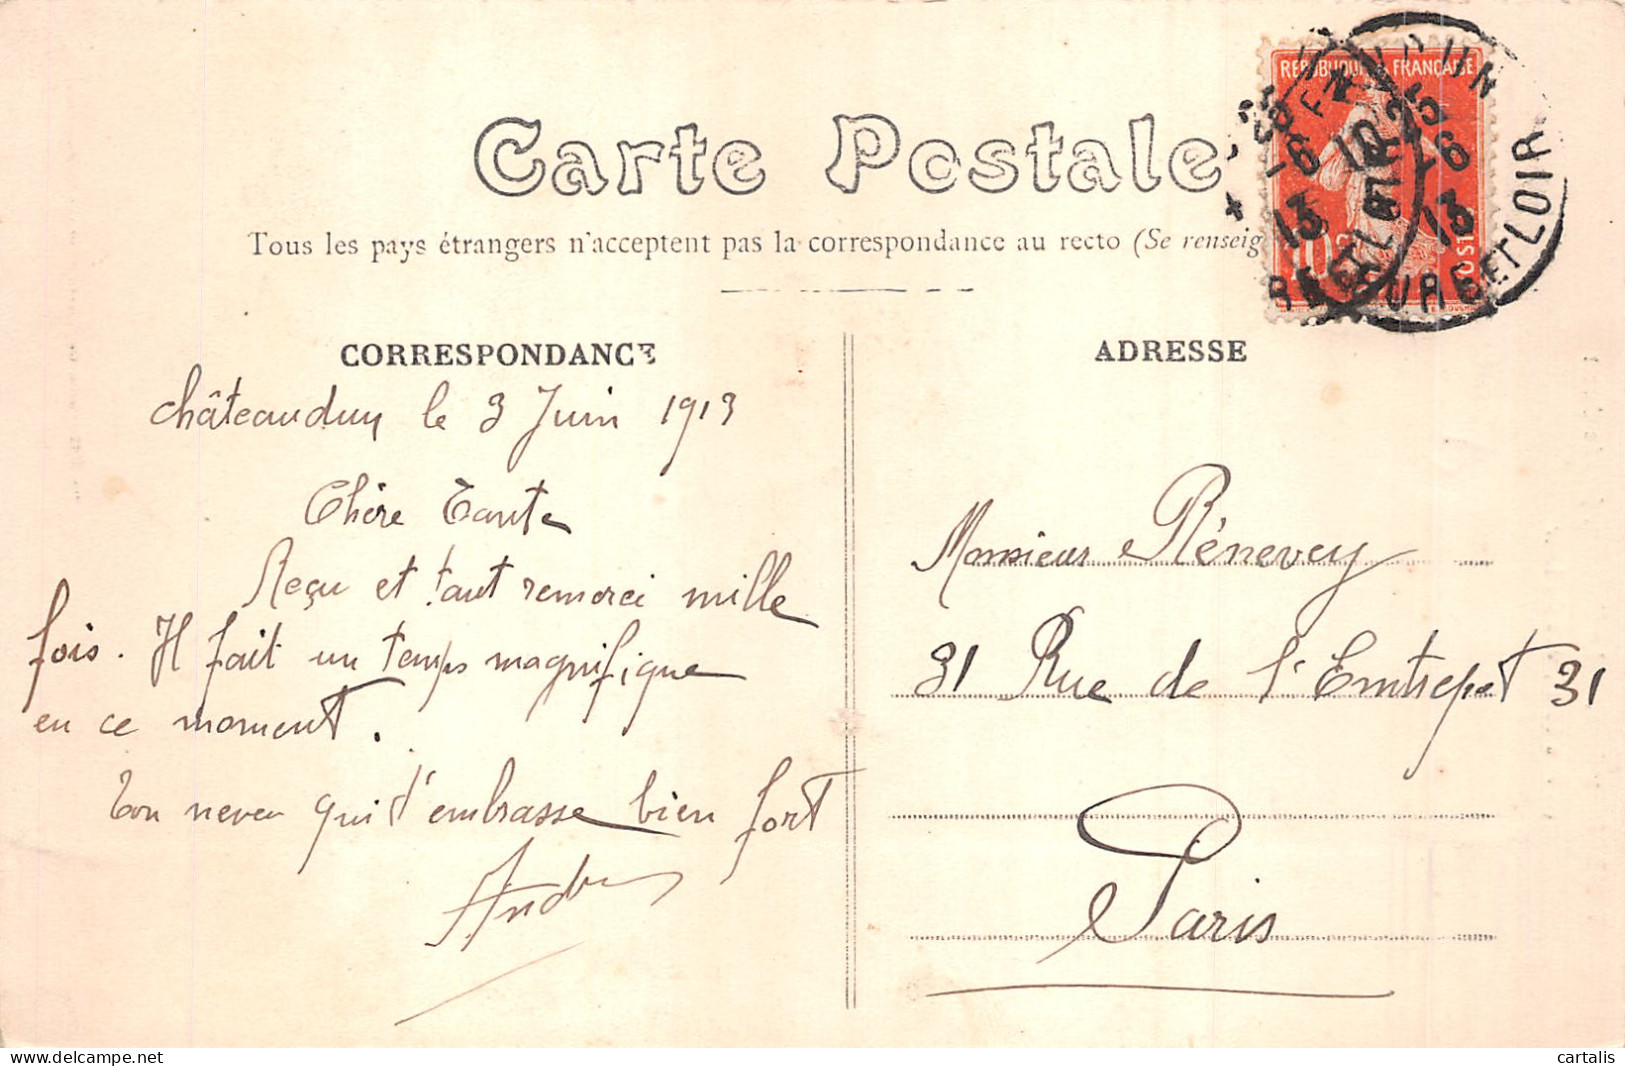 Carte Postale
Tous les pays étrangers n'acceptent pas la correspondance au recto (Se renseig
RÉPUBLIQUE FRANÇAISE
10
POSTES
10 25
-6
13
-6
13
EURE ET LOIR
CORRESPONDANCE
châteaudun le 3 Juin 1913
Chère Tante
Reçu et tout remerci mille
fois. Il fait un temps magnifique
en ce moment.
Ton neveu qui t'embrasse bien fort
André
ADRESSE
Monsieur Rénevey
31 Rue de l'Entrepot 31
Paris
cartalis